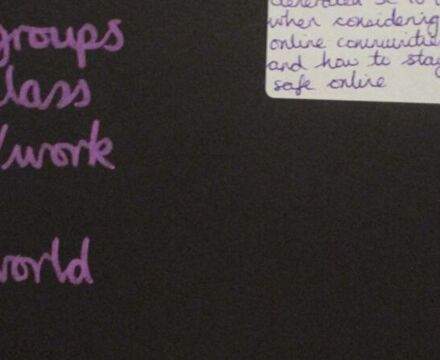 groups
class
/work
world
when considering
online communities
and how to stay
safe online